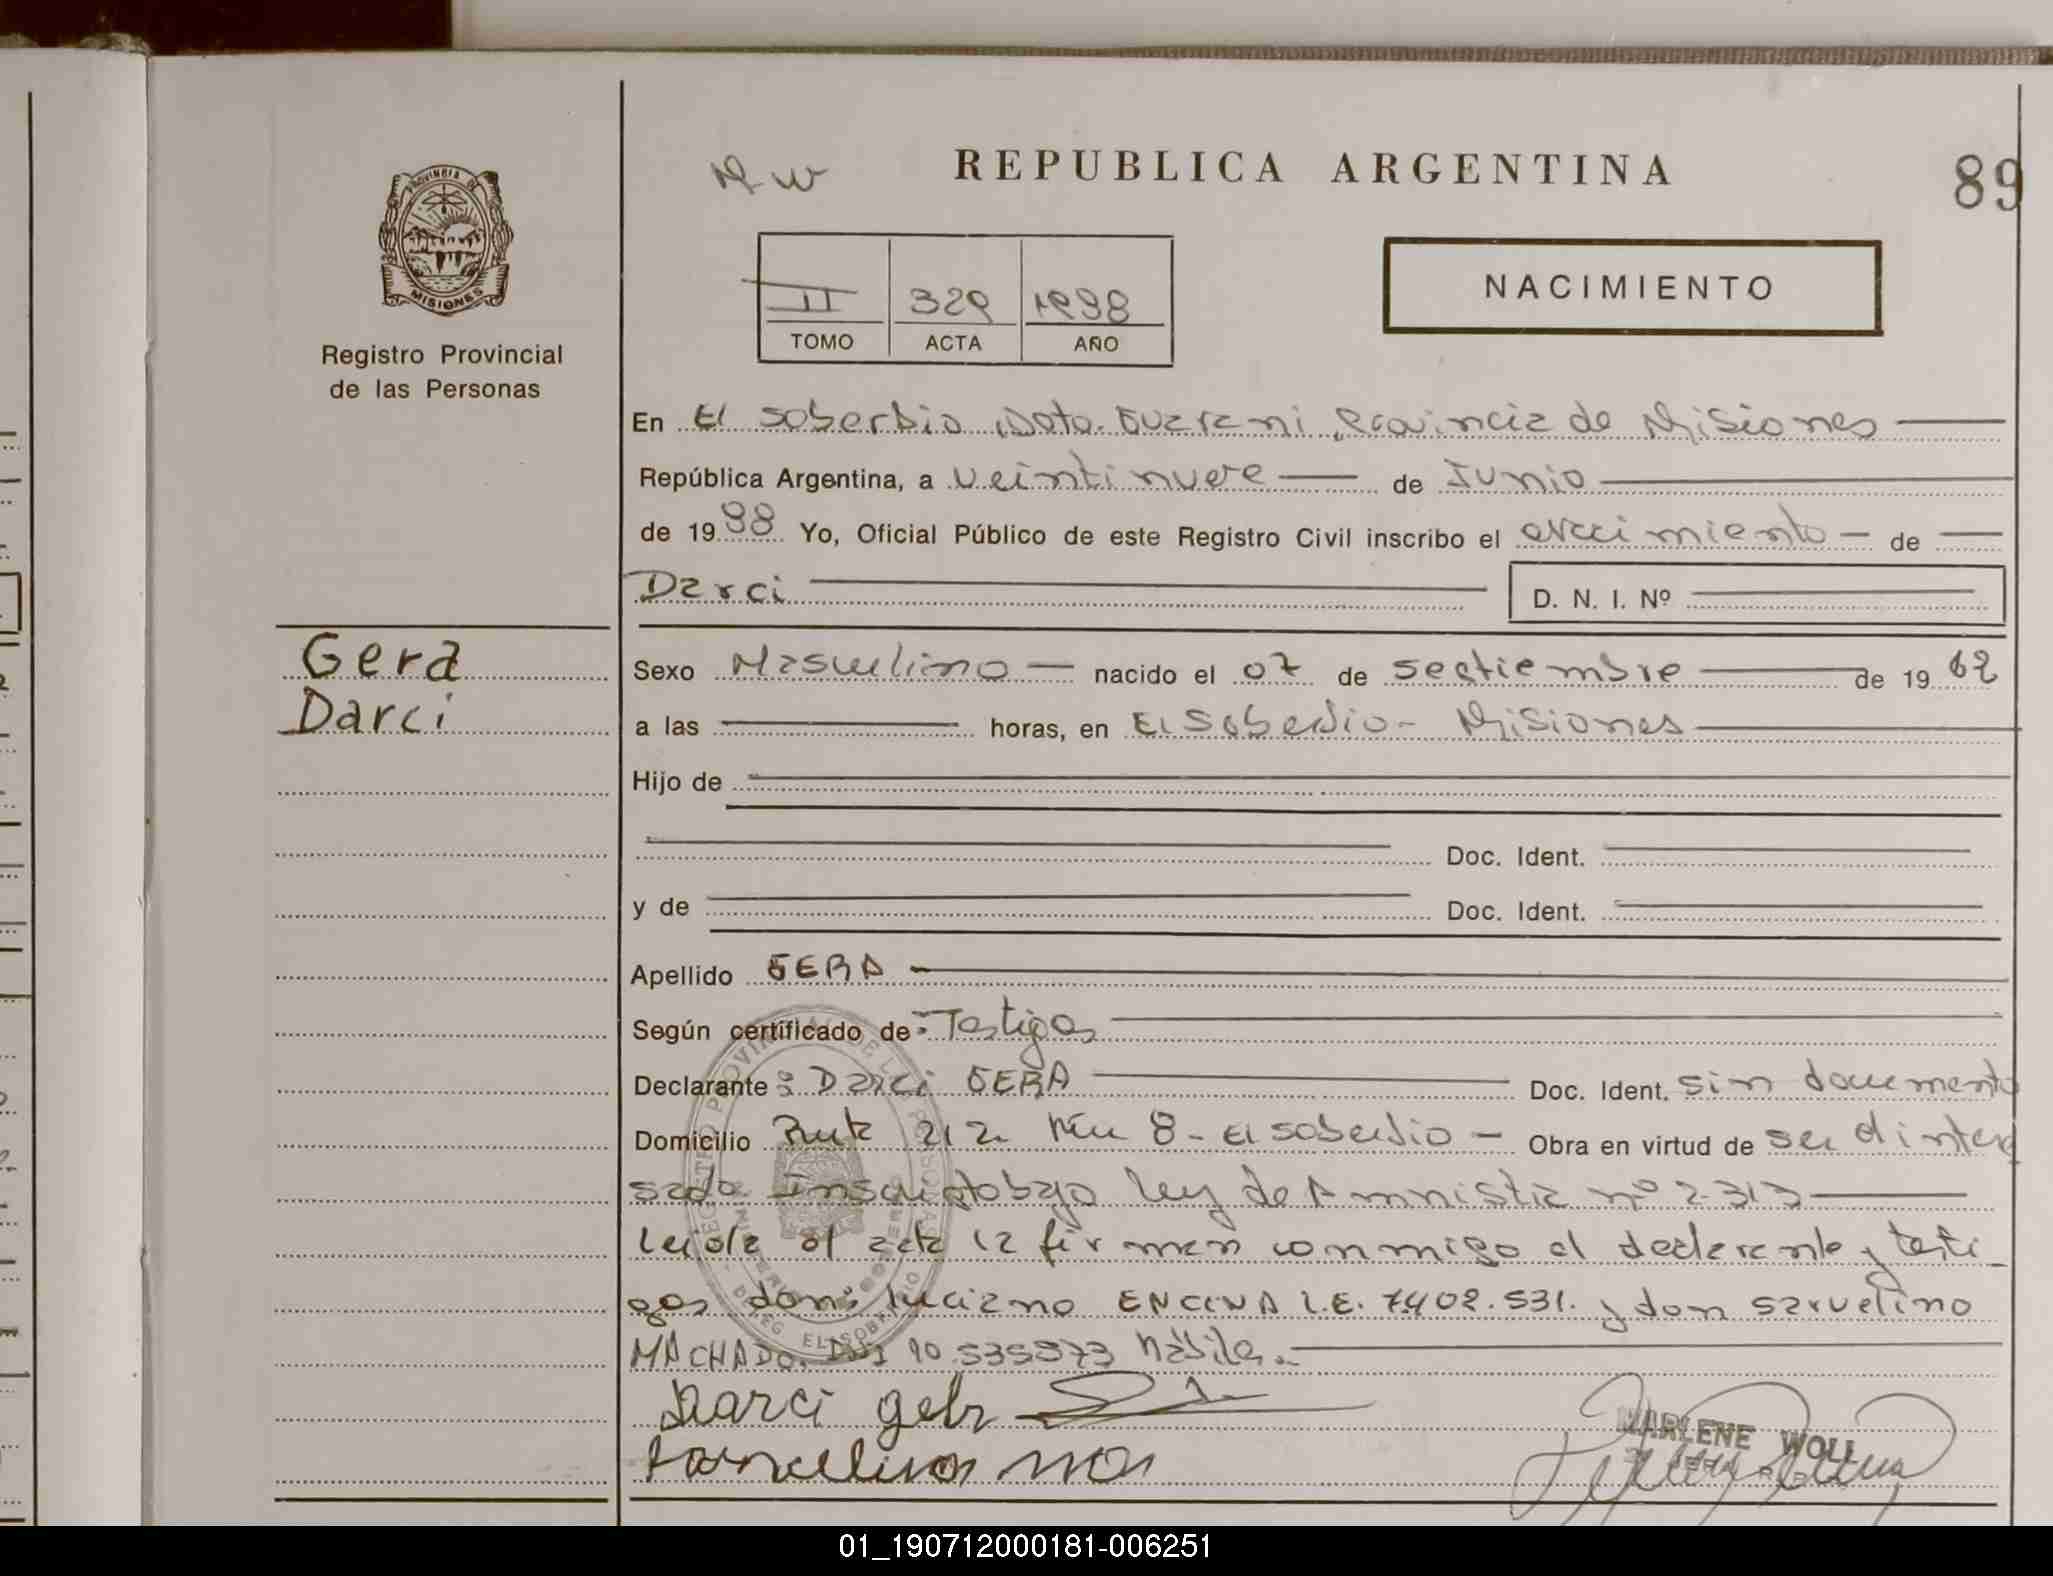 REPUBLICA ARGENTINA
89
PROVINCIA DE
MISIONES
Registro Provincial
de las Personas
NACIMIENTO
II 329 1998
TOMO ACTA AÑO
En El Soberbio, Dpto. Guarani, Provincia de Misiones
República Argentina, a veintinueve de Junio
de 1998 Yo, Oficial Público de este Registro Civil inscribo el nacimiento de
Darci D. N. I. Nº
Gera
Darci
Sexo Masculino nacido el 07 de septiembre de 1962
a las horas, en El Soberbio - Misiones
Hijo de
Doc. Ident.
y de Doc. Ident.
Apellido GERA
Según certificado de: Testigos
Declarante: Darci GERA Doc. Ident. sin documento
Domicilio Ruta 212 Km 8 - El Soberbio - Obra en virtud de ser el intere
sado Inscripto bajo Ley de Amnistia nº 2.313
Leida el acta la firman conmigo el declarante y testi
gos don: Luciano ENCINA L.E. 7.402.531. y don Sarvelino
MACHADO. DNI 90.535573 Hábiles.
Darci gera
MARLENE WOLL
01_190712000181-006251